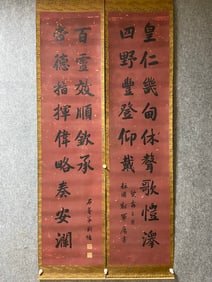 四野豐登仰戴
皇仁畿甸休聲歌愷澤
百靈效順欽承
睿德指揮偉略奏安瀾
石菴弟劉墉